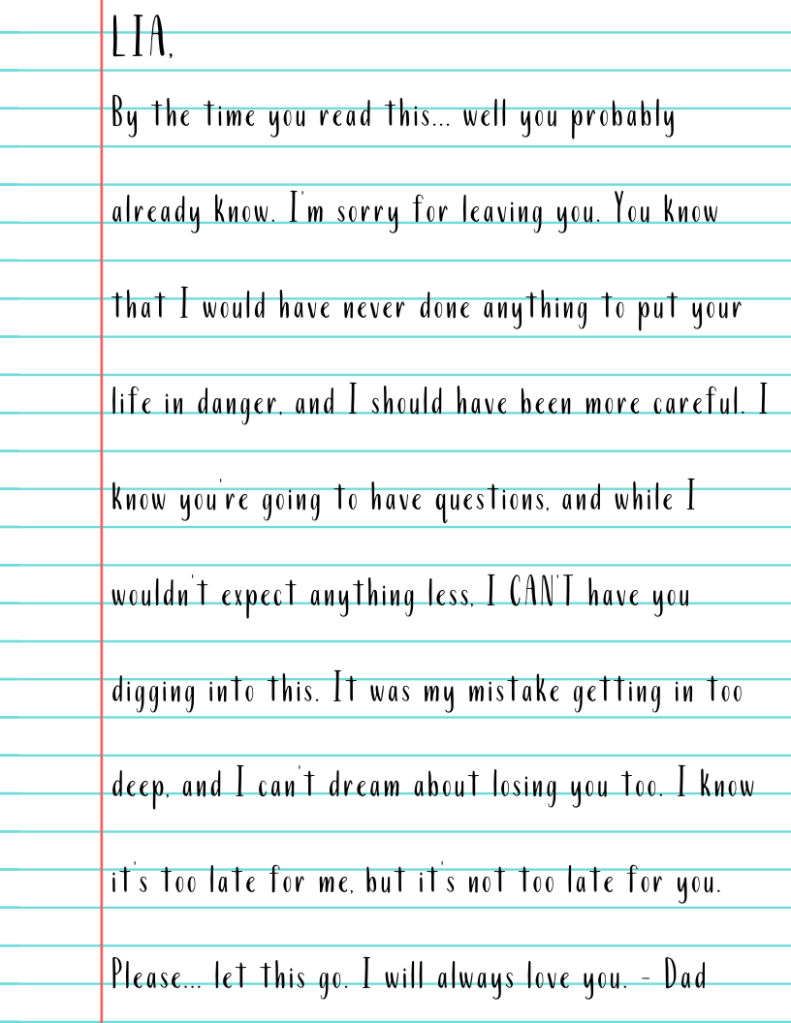 LIA,
By the time you read this... well you probably
already know. I'm sorry for leaving you. You know
that I would have never done anything to put your
life in danger, and I should have been more careful. I
know you're going to have questions, and while I
wouldn't expect anything less, I CAN'T have you
digging into this. It was my mistake getting in too
deep, and I can't dream about losing you too. I know
it's too late for me, but it's not too late for you.
Please... let this go. I will always love you. - Dad